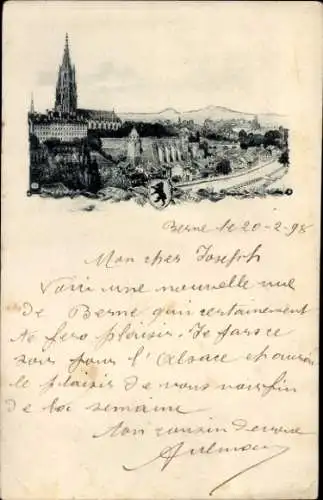 Berne le 20-2-98
Mon cher Joseph
Voici une nouvelle vue
de Berne qui certainement
te fera plaisir. Je pars ce
soir pour l'Alsace et aurai
le plaisir de vous voir fin
de la semaine
ton cousin dévoué